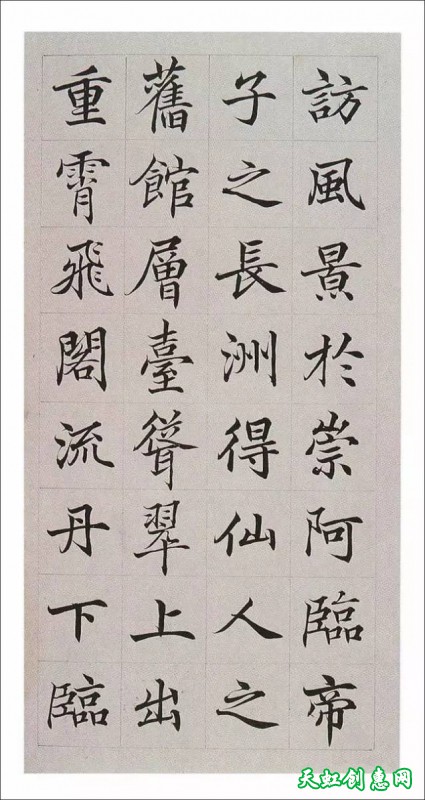 訪風景於崇阿臨帝
子之長洲得仙人之
舊館層臺聳翠上出
重霄飛閣流丹下臨
天虹创惠网